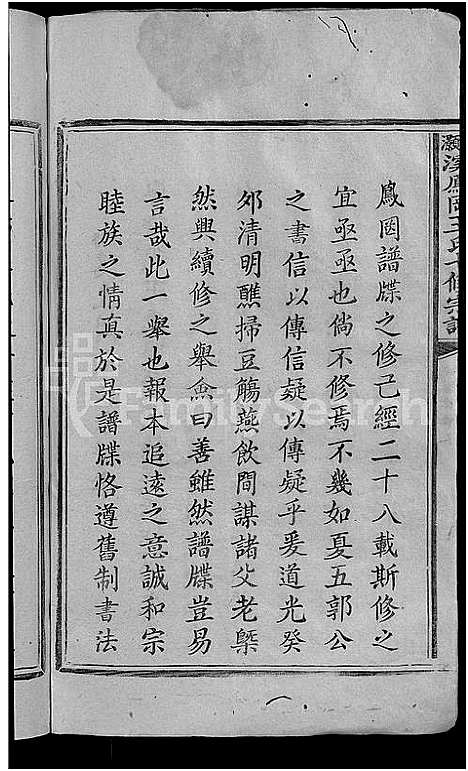 鳳岡譜牒之修已經二十八載斯修之
宜亟亟也倘不修焉不幾如夏五郭公
之書信以傳信疑以傳疑乎爰道光癸
邜清明醮掃豆觴燕飲間謀諸父老槩
然興續修之舉僉曰善雖然譜牒豈易
言哉此一舉也報本追遠之意誠和宗
睦族之情真於是譜牒恪遵舊制書法
灝溪鳳岡王氏 修宗譜
FamilySearch